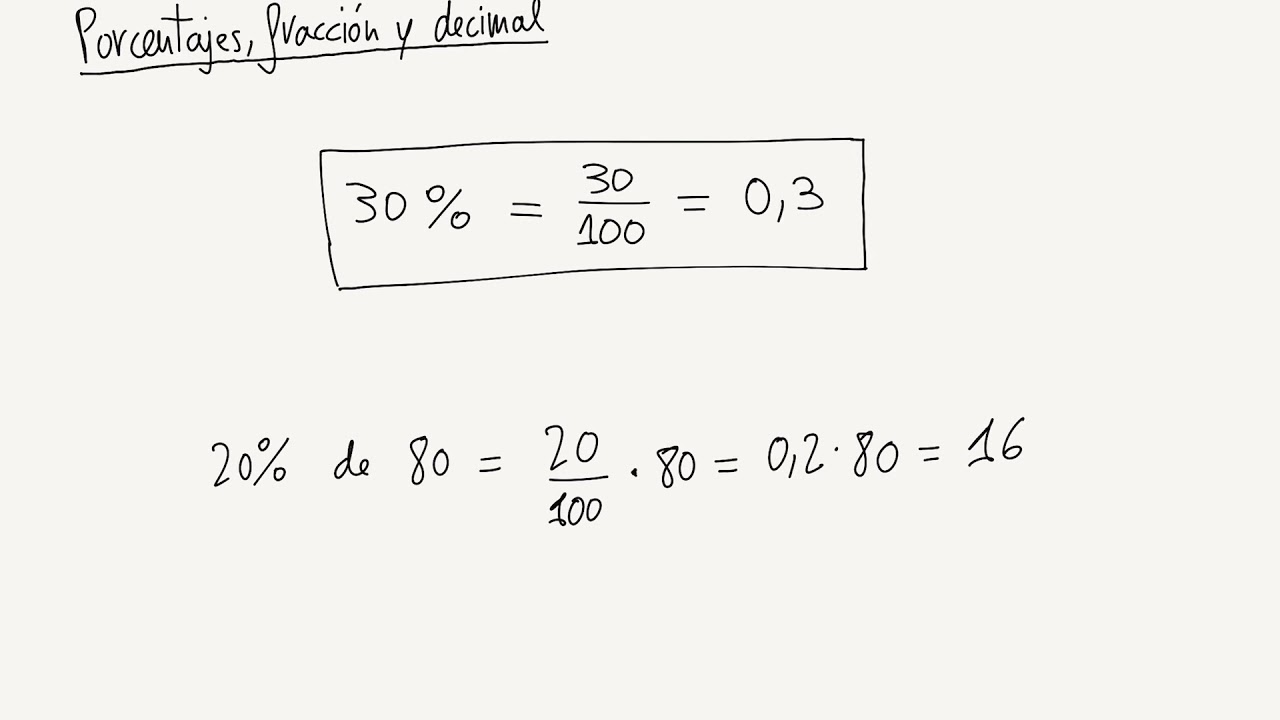 Porcentajes, fracción y decimal
30 % = 30/100 = 0,3
20% de 80 = 20/100 · 80 = 0,2 · 80 = 16